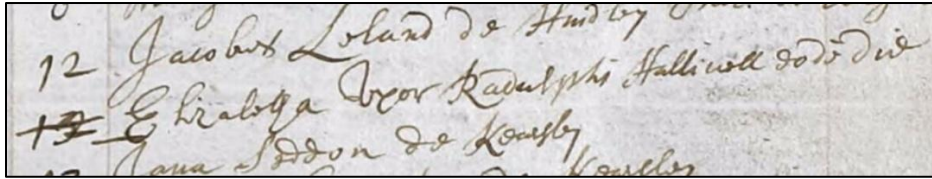 12 Jacobus Leland de Hindley
Elizabetha Uxor Radulphi Halliwell eodē die
Jana Seddon de Kearsley
Kearsley